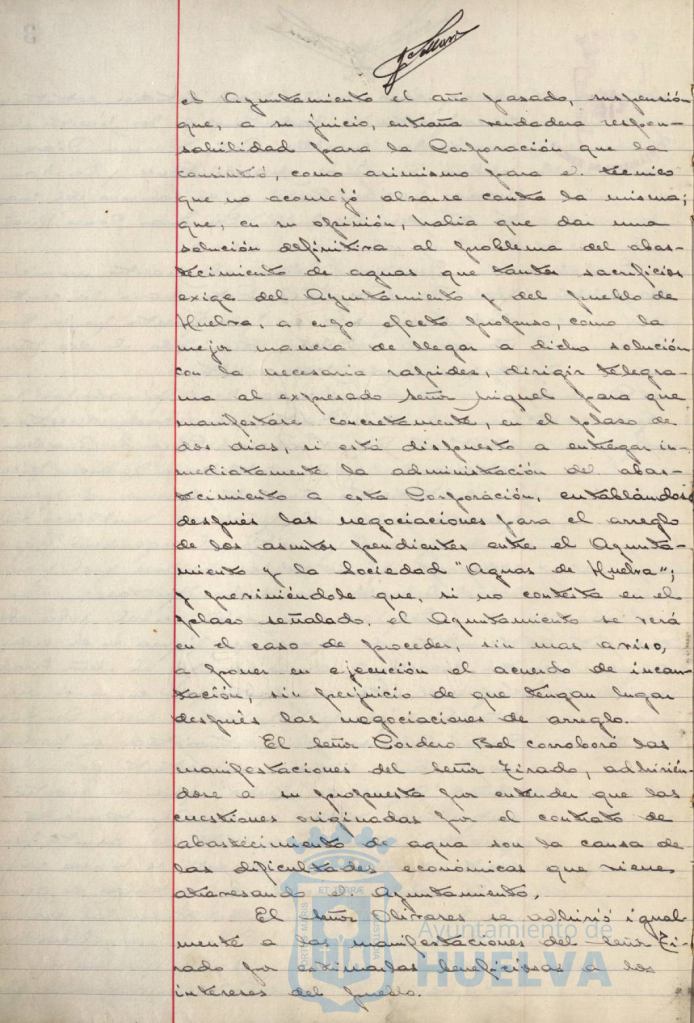 el Ayuntamiento el año pasado, suspensión
que, a su juicio, entraña verdadera respon-
sabilidad para la Corporación que la
consintió, como asimismo para el técnico
que no aconsejó alzarse contra la misma;
que, en su opinión, había que dar una
solución definitiva al problema del abas-
tecimiento de aguas que tantos sacrificios
exige del Ayuntamiento y del pueblo de
Huelva, a cuyo efecto propuso, como la
mejor manera de llegar a dicha solución
con la necesaria rapidez, dirigir telegra-
ma al expresado Señor Miquel para que
manifestase concretamente, en el plazo de
dos dias, si está dispuesto a entregar in-
mediatamente la administración del abas-
tecimiento a esta Corporación, entablándose
después las negociaciones para el arreglo
de los asuntos pendientes entre el Ayunta-
miento y la Sociedad "Aguas de Huelva";
y previniéndole que, si no contesta en el
plazo señalado, el Ayuntamiento se verá
en el caso de proceder, sin mas aviso,
a poner en ejecución el acuerdo de incau-
tación, sin perjuicio de que tengan lugar
después las negociaciones de arreglo.
El Señor Cordero Bel corroboró las
manifestaciones del Señor Tirado, adhirién-
dose a su propuesta por entender que las
cuestiones originadas por el contrato de
abastecimiento de agua son la causa de
las dificultades económicas que viene
atravesando el Ayuntamiento.
El Señor Olivares se adhirió igual-
mente a las manifestaciones del Señor Ti-
rado por estimarlas beneficiosas a los
intereses del pueblo.
Ayuntamiento de
HUELVA